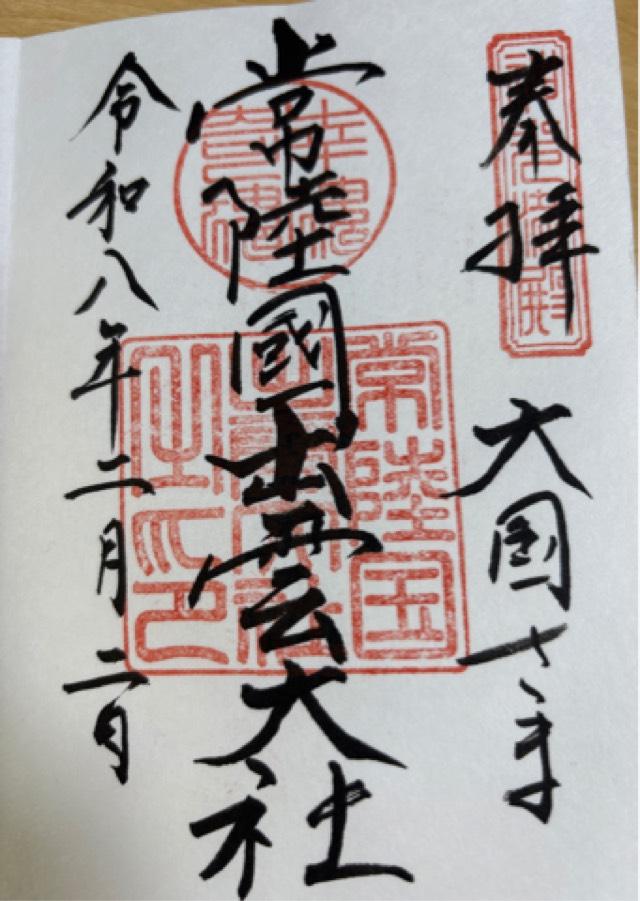 奉拝 大国さま
常陸國出雲大社
令和八年二月二日
常陸国